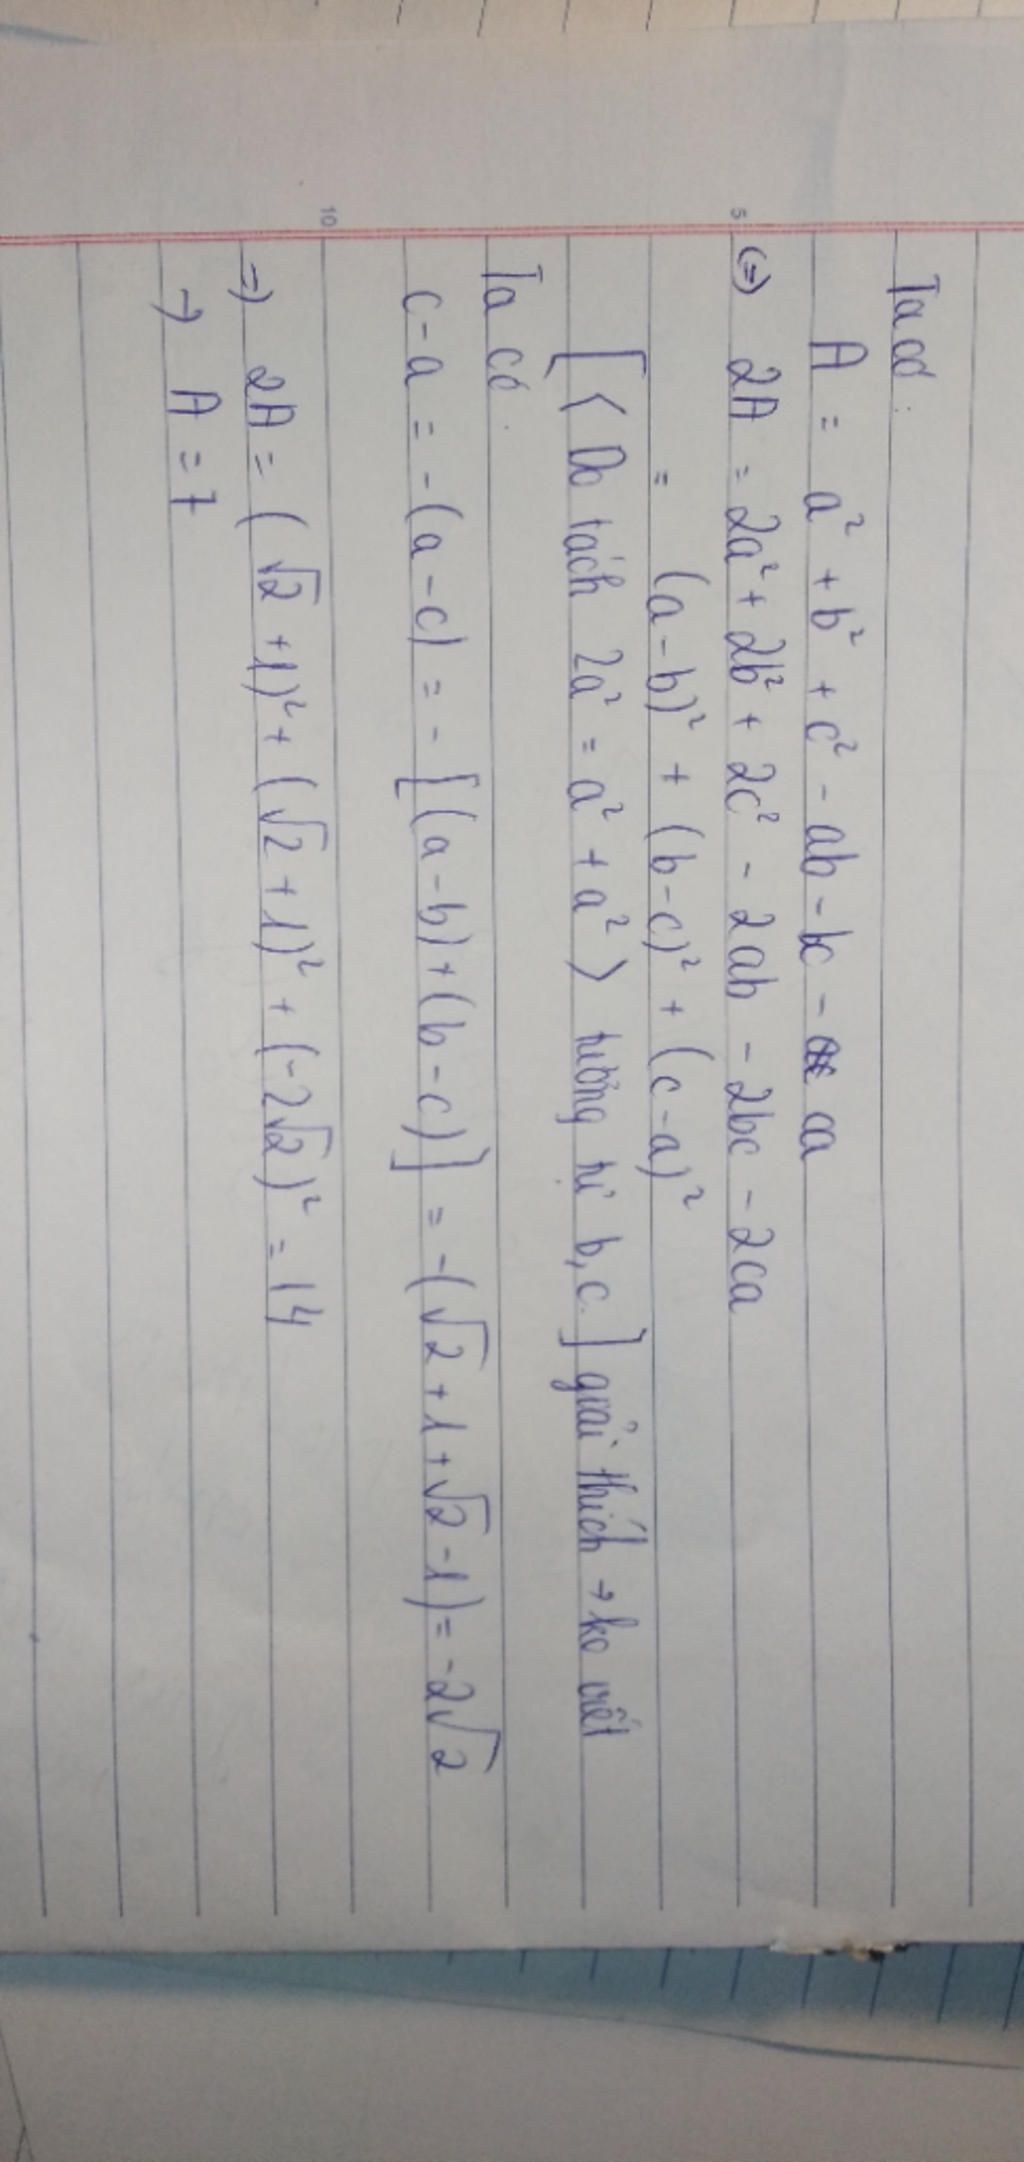 Ta có:
A = a² + b² + c² - ab - bc - ca
5
(=) 2A = 2a² + 2b² + 2c² - 2ab - 2bc - 2ca
= (a-b)² + (b-c)² + (c-a)²
[< Do tách 2a² = a² + a² > tương tự b, c.] giải thích → ko viết
Ta có:
c-a = -(a-c) = -[(a-b)+(b-c)] = -(√2+1+√2-1) = -2√2
10
=) 2A = (√2+1)² + (√2+1)² + (-2√2)² = 14
→ A = 7